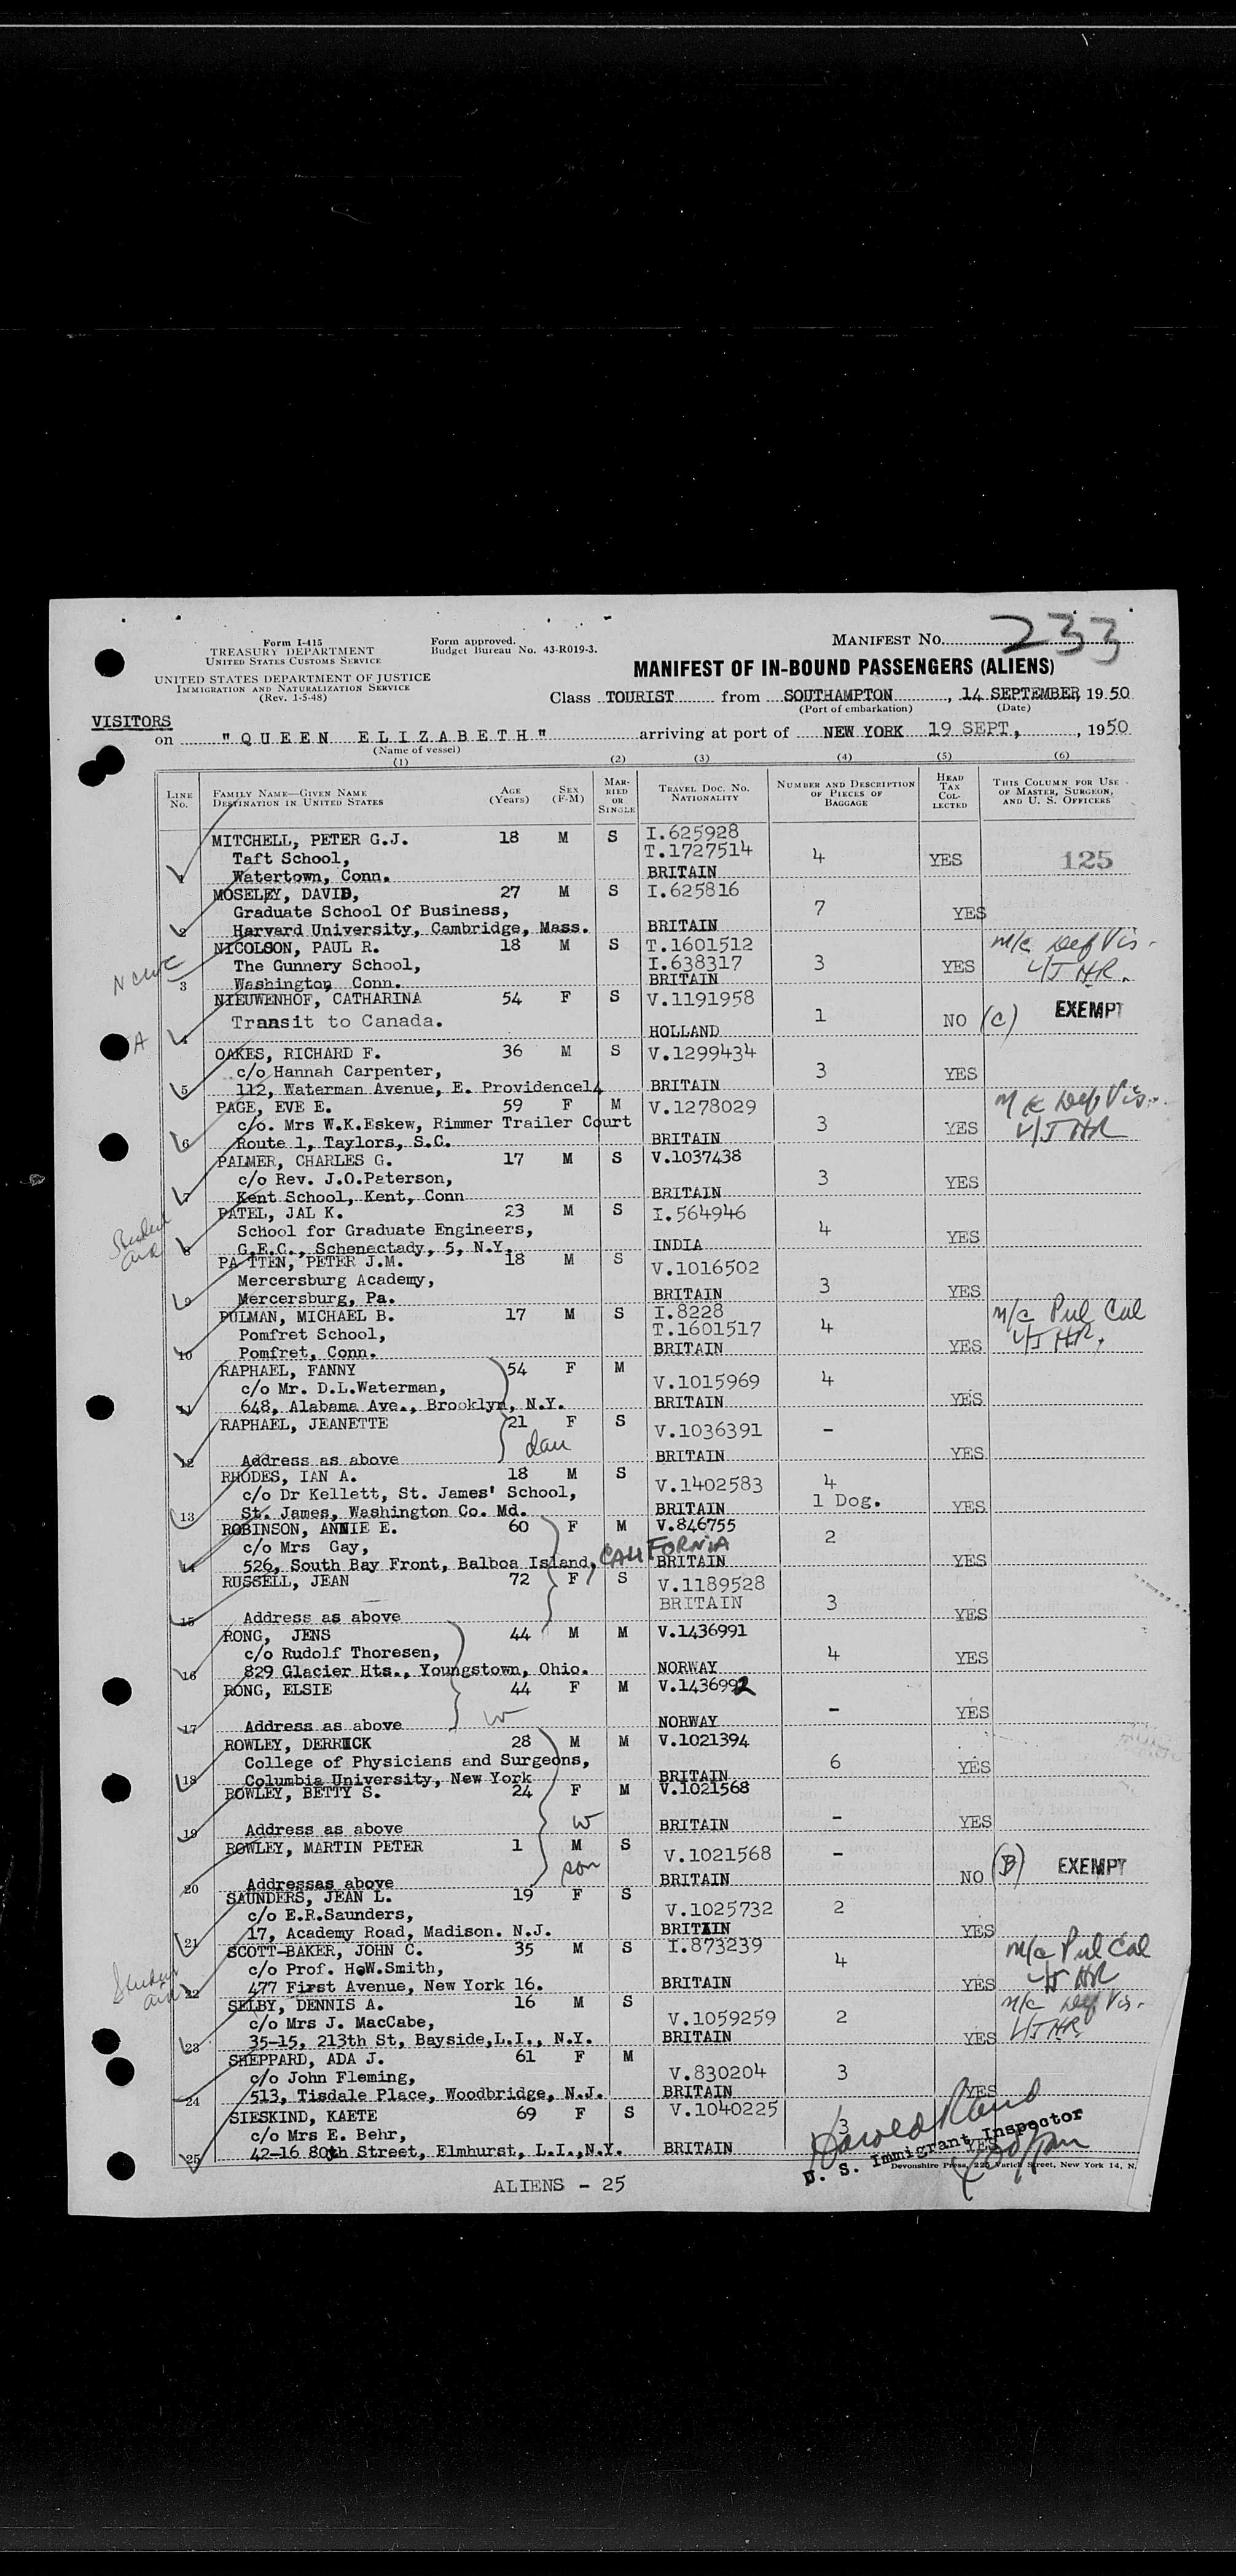 Form I-415
TREASURY DEPARTMENT
UNITED STATES CUSTOMS SERVICE
UNITED STATES DEPARTMENT OF JUSTICE
IMMIGRATION AND NATURALIZATION SERVICE
(Rev. 1-5-48)
Form approved.
Budget Bureau No. 43-R019-3.
MANIFEST NO. 233
MANIFEST OF IN-BOUND PASSENGERS (ALIENS)
Class TOURIST from SOUTHAMPTON, 14 SEPTEMBER, 1950
(Port of embarkation) (Date)
VISITORS
on "QUEEN ELIZABETH" arriving at port of NEW YORK 19 SEPT, , 1950
(Name of vessel)
(1) (2) (3) (4) (5) (6)
LINE No. FAMILY NAME—GIVEN NAME DESTINATION IN UNITED STATES AGE (Years) SEX (F-M) MARRIED OR SINGLE TRAVEL DOC. NO. NATIONALITY NUMBER AND DESCRIPTION OF PIECES OF BAGGAGE HEAD TAX COLLECTED THIS COLUMN FOR USE OF MASTER, SURGEON, AND U. S. OFFICERS
MITCHELL, PETER G.J. 18 M S I.625928
Taft School, T.1727514 4 YES 125
1 Watertown, Conn. BRITAIN
MOSELEY, DAVID, 27 M S I.625816
Graduate School Of Business, 7 YES
2 Harvard University, Cambridge, Mass. BRITAIN
NICOLSON, PAUL R. 18 M S T.1601512 m/c Def Vis.
The Gunnery School, I.638317 3 YES
3 Washington, Conn. BRITAIN
NIEUWENHOF, CATHARINA 54 F S V.1191958
Transit to Canada. 1 NO (C) EXEMPT
A 4 HOLLAND
OAKES, RICHARD F. 36 M S V.1299434
c/o Hannah Carpenter, 3 YES
5 112, Waterman Avenue, E. Providence14 BRITAIN
PAGE, EVE E. 59 F M V.1278029 m/c Def Vis.
c/o. Mrs W.K.Eskew, Rimmer Trailer Court 3 YES
6 Route 1, Taylors, S.C. BRITAIN
PALMER, CHARLES G. 17 M S V.1037438
c/o Rev. J.O.Peterson, 3 YES
7 Kent School, Kent, Conn BRITAIN
PATEL, JAL K. 23 M S I.564946
School for Graduate Engineers, 4 YES
8 G.E.C., Schenectady, 5, N.Y. INDIA
PATTEN, PETER J.M. 18 M S V.1016502
Mercersburg Academy, 3 YES
9 Mercersburg, Pa. BRITAIN
PULMAN, MICHAEL B. 17 M S I.8228 m/c Pul Cal
Pomfret School, T.1601517 4
10 Pomfret, Conn. BRITAIN YES
RAPHAEL, FANNY 54 F M
c/o Mr. D.L.Waterman, V.1015969 4
11 648, Alabama Ave., Brooklyn, N.Y. BRITAIN YES
RAPHAEL, JEANETTE 21 F S V.1036391 -
dau
12 Address as above BRITAIN YES
RHODES, IAN A. 18 M S
c/o Dr Kellett, St. James' School, V.1402583 4
13 St. James, Washington Co. Md. BRITAIN 1 Dog. YES
ROBINSON, ANNIE E. 60 F M V.846755
c/o Mrs Gay, 2
14 526, South Bay Front, Balboa Island, CALIFORNIA BRITAIN YES
RUSSELL, JEAN 72 F S V.1189528
BRITAIN 3
15 Address as above YES
RONG, JENS 44 M M V.1436991
c/o Rudolf Thoresen, 4 YES
16 829 Glacier Hts., Youngstown, Ohio. NORWAY
RONG, ELSIE 44 F M V.1436992
w - YES
17 Address as above NORWAY
ROWLEY, DERRICK 28 M M V.1021394
College of Physicians and Surgeons, 6 YES
18 Columbia University, New York BRITAIN
ROWLEY, BETTY S. 24 F M V.1021568
w - YES
19 Address as above BRITAIN
ROWLEY, MARTIN PETER 1 M S V.1021568 -
son NO (B) EXEMPT
20 Addressas above BRITAIN
SAUNDERS, JEAN L. 19 F S
c/o E.R.Saunders, V.1025732 2
21 17, Academy Road, Madison. N.J. BRITAIN YES
SCOTT-BAKER, JOHN C. 35 M S I.873239 m/c Pul Cal
c/o Prof. H.W.Smith, 4
22 477 First Avenue, New York 16. BRITAIN YES
SELBY, DENNIS A. 16 M S m/c Def Vis.
c/o Mrs J. MacCabe, V.1059259 2
23 35-15, 213th St, Bayside,L.I., N.Y. BRITAIN YES
SHEPPARD, ADA J. 61 F M
c/o John Fleming, V.830204 3
24 513, Tisdale Place, Woodbridge, N.J. BRITAIN YES
SIESKIND, KAETE 69 F S V.1040225
c/o Mrs E. Behr, 3
25 42-16 80th Street, Elmhurst, L.I.,N.Y. BRITAIN YES
U. S. Immigrant Inspector
Devonshire Press, 225 Varick Street, New York 14, N.
ALIENS - 25